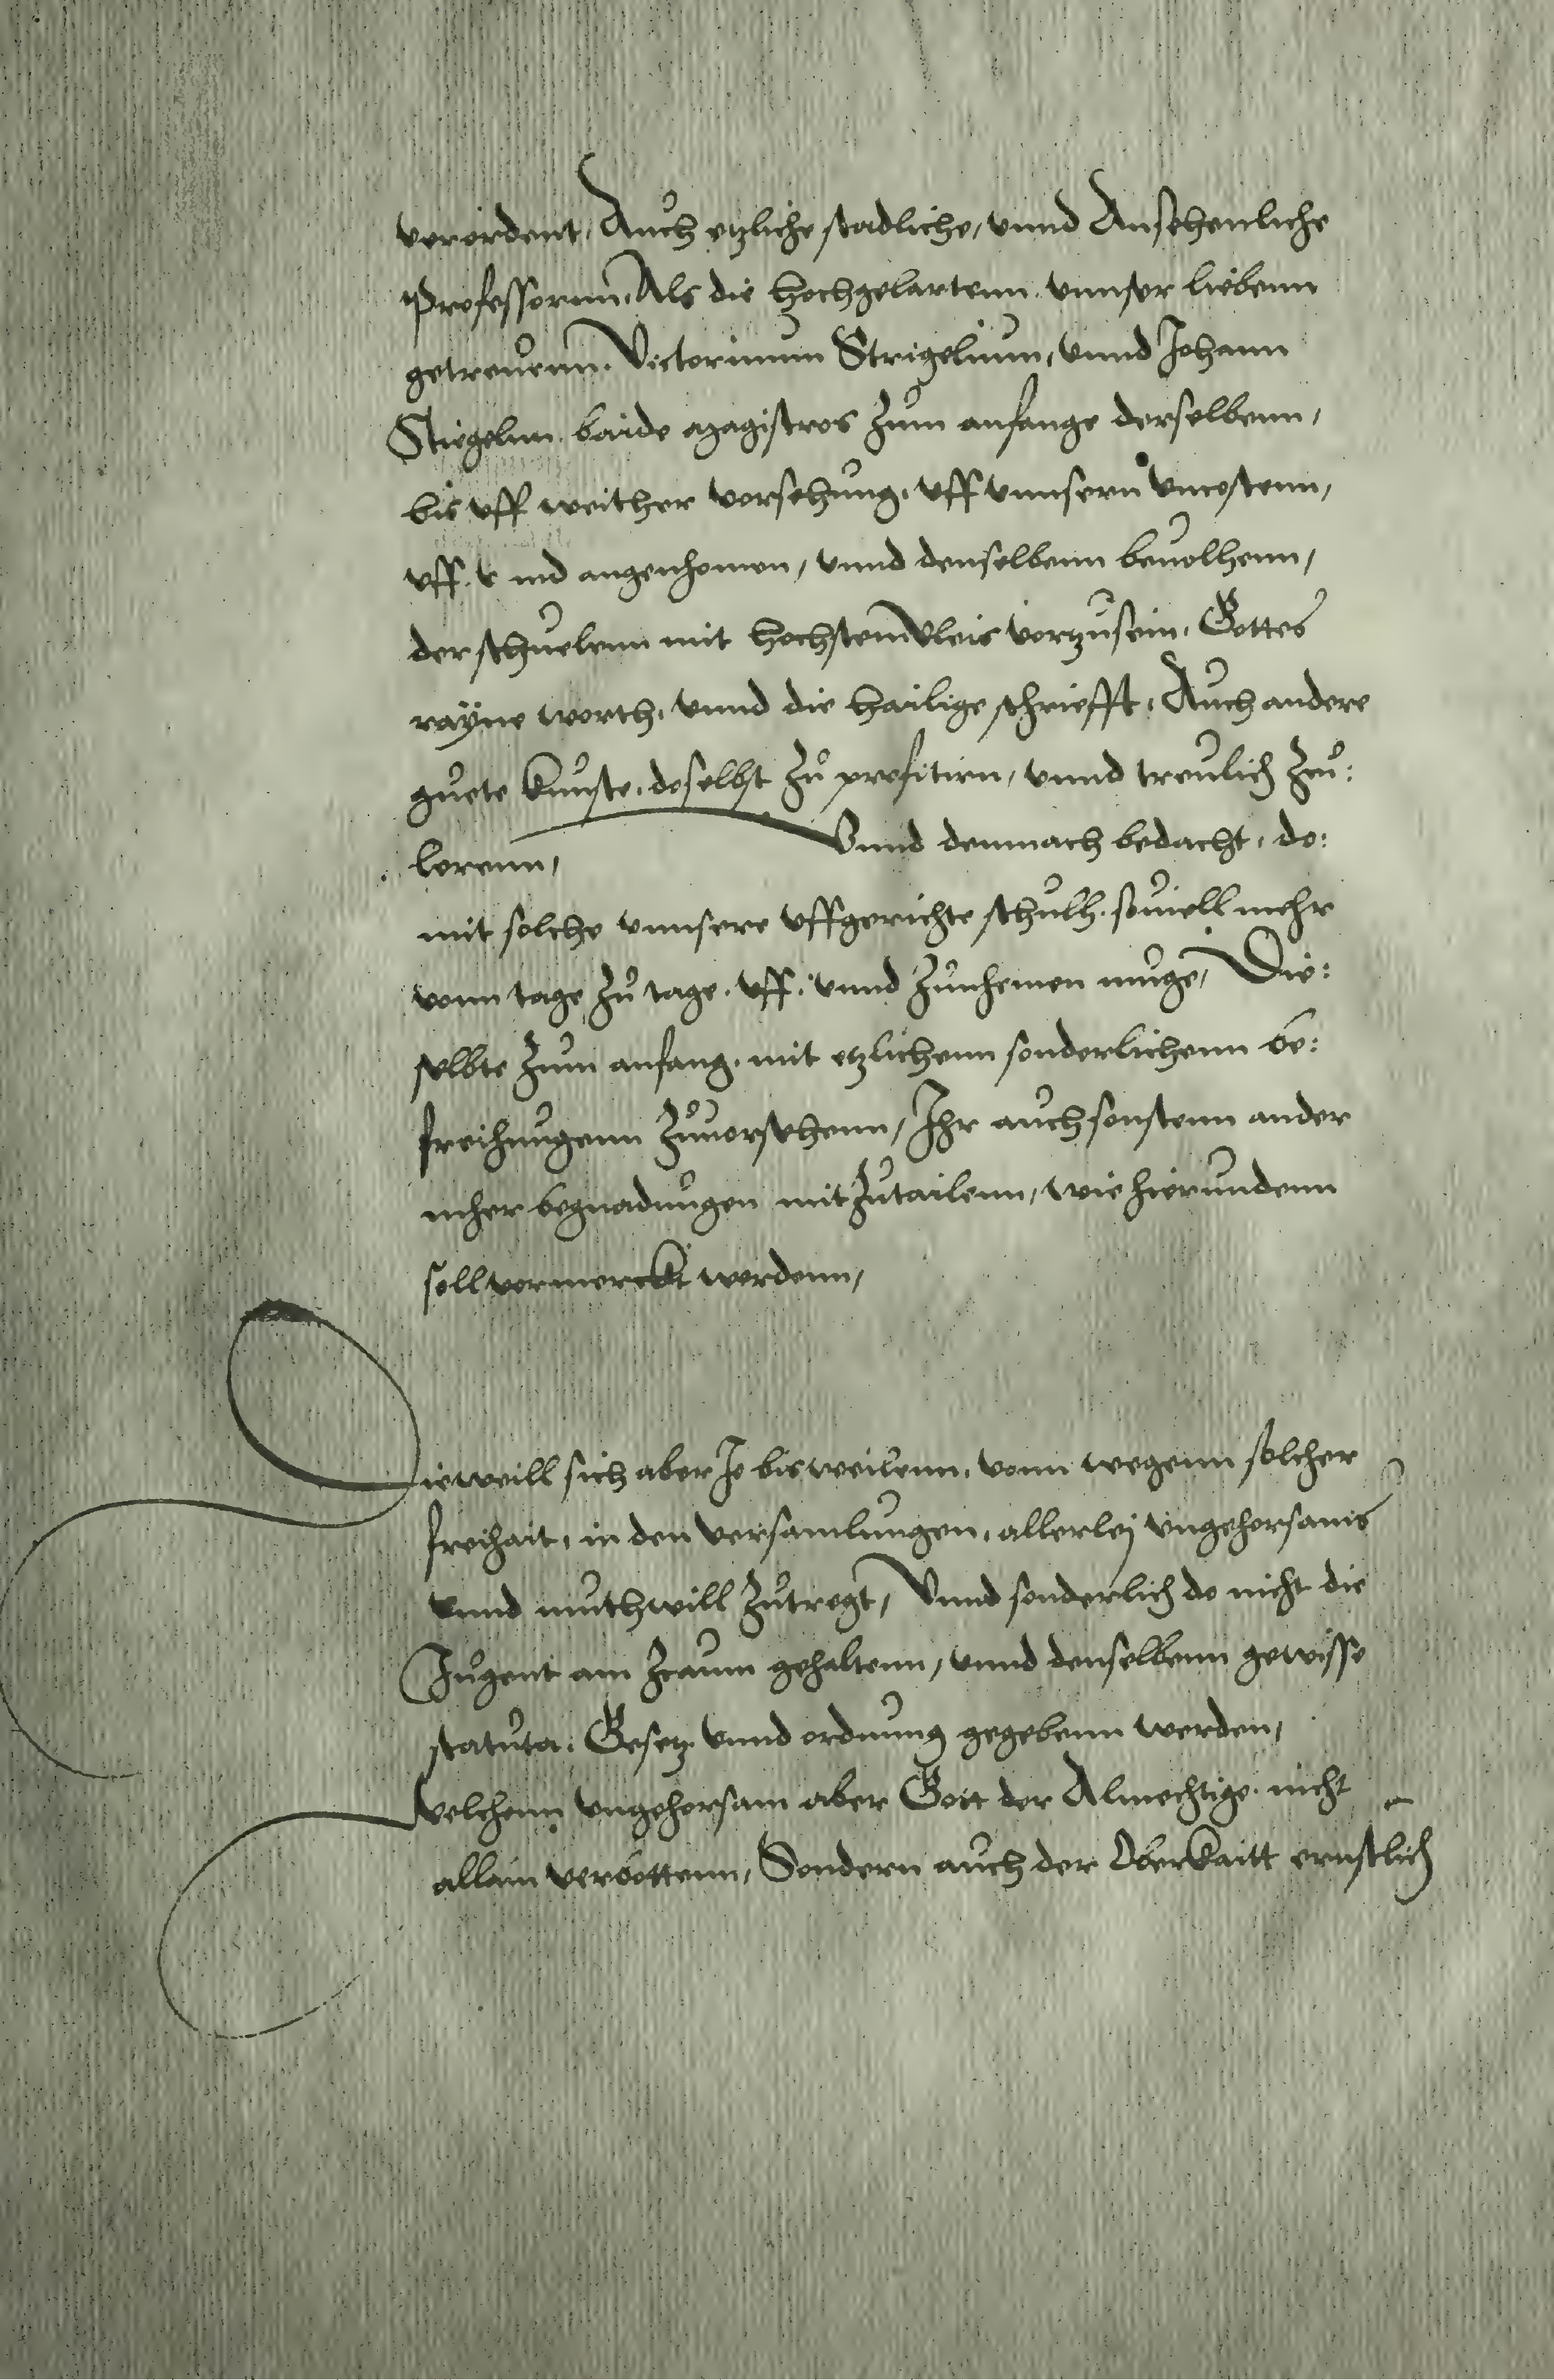 verordent, Auch etzliche stadliche, vnnd Ansehenliche
Professorn, Als die hochgelartenn, vnnser liebenn
getreuenn, Victorinum Strigelium, vnnd Johann
Stiegelnn, baide magistros zum anfange derselbenn,
bis vff weither vorsehung, vff vnnsern vncostenn,
vff v nd angenhomen, vnnd denselbenn beuolhenn,
der schuelenn mit hochstem vleis vorzusein, Gottes
rayne worth, vnnd die hailige schriefft, Auch andere
guete kunste, doselbst zu profitirn, vnnd treulich zeu:
lerenn, Vnnd demnach bedacht, do:
mit solche vnnsere vffgerichte schulh, souiell mehr
vonn tage zu tage, vff: vnnd zunhemen muge, Die:
selbte zum anfang, mit etzlichenn sonderlichenn be:
freihungenn zuuorsehenn, Ihr auch sonstenn ander
mher begnadungen mitzutailenn, wie hierundenn
soll vormerckt werdenn,
Dieweill sich aber Je bisweilenn, vonn wegenn solcher
freihait, in den versamlungen, allerley vngehorsams
vnnd muthwill zutregt, Vnnd sonderlich do nicht die
Jugent am zcaum gehaltenn, vnnd denselbenn gewisse
statuta, Gesetz vnnd ordnung gegebenn werden,
Welchenn vngehorsam aber Gott der Almechtige, nicht
allain verbottenn, Sondern auch der Oberkaitt ernstlich